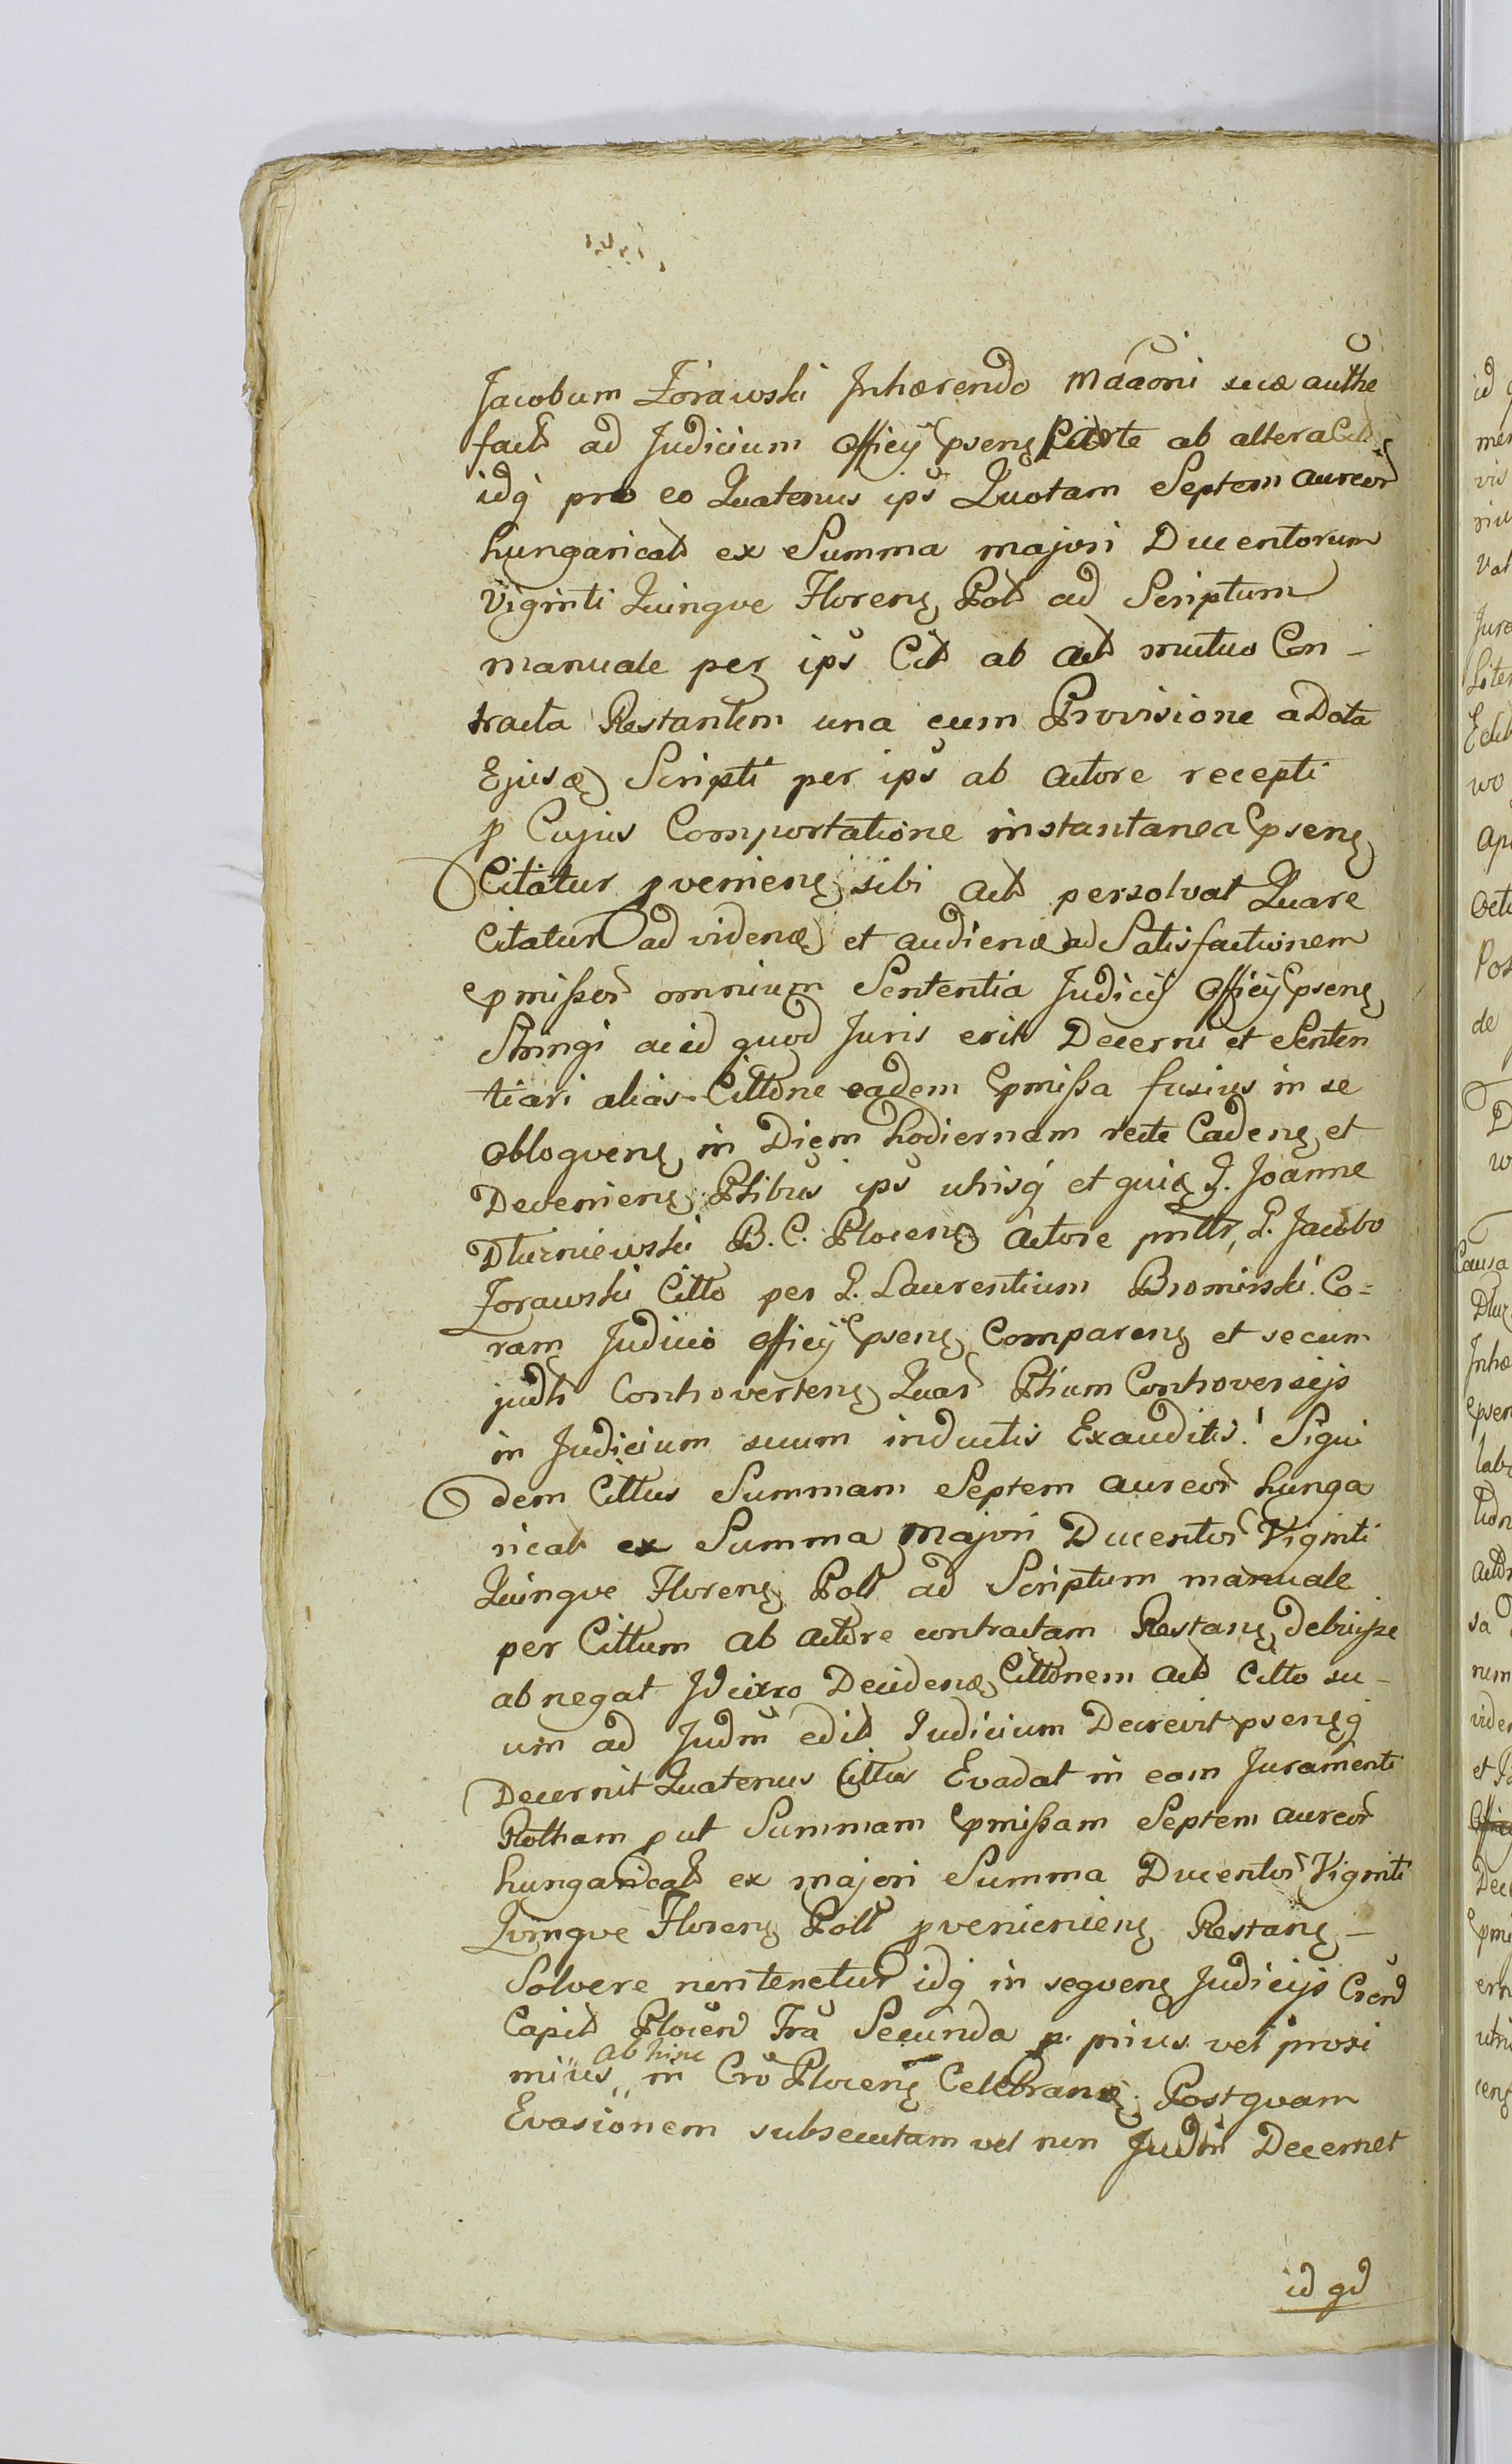 Jacobum Żórawski Inhærendo Mdaoni suæ authe
fact ad Judicium Officÿ pseng parte ab altera Cit
idq pro eo Quatenus ips Quotam Septem aureor
hungaricał ex Summa majori Ducentorum
Viginti Quinque Floreng Pol ad Scriptum
manuale per ips Cit ab act mutuo Con-
tracta Restantem una cum Provisione a Data
Ejusd Scripti per ips ab actore recepti
p Cujus Comportatione instantanea pseng
Citatur pvenieng sibi act persolvat Quare
Citatur ad videnđ et audienđ ad Satisfactionem
pmißor omnium Sententia Judicÿ Officÿ pseng
Stringi ac id quod Juris erit Decerni et Senten
tiari alias Cittone eadem pmißa fusius in se
obloqueng in Diem hodiernam recte Cadeng et
Devenieng Ptibus ips utrisq et quid G. Joanne
Dłuzniewski B. C. Ploceng Actore pntb, G. Jacobo
Zorawski Citto per G. Laurentium Bromirski Co=
ram Judicio officÿ pseng Compareng et secum
judli Controverteng Quar Ptium Controversijs
in Judicium suum inductis Exauditis! Siqui
dem Cittus Summam Septem aureor hunga
ricał ex Summa Majori Ducentor Viginti
Quinque Floreng Poll ad Scriptum manuale
per Cittum ab actore contractam Restang debuiße
abnegat Idcirco Decidenđ Cittonem act Citto su-
um ad Judm edit Judicium Decrevit psengq
Decernit Quatenus Cittus Evadat in eam Juramenti
Rotham put Summam pmißam Septem aureor
hungaricał ex majori Summa Ducentor Viginti
Quinque Floreng Poll pvenienieng Restang-
Solvere non tenetur idq in sequeng Judicijs Cren
Capit Plocen Fra Secunda p. prius vel proxi
abhinc
mius,, in Cro Ploceng Celebrang. Postquam
Evasionem subsecutam vel non Judm Decernet
id qd